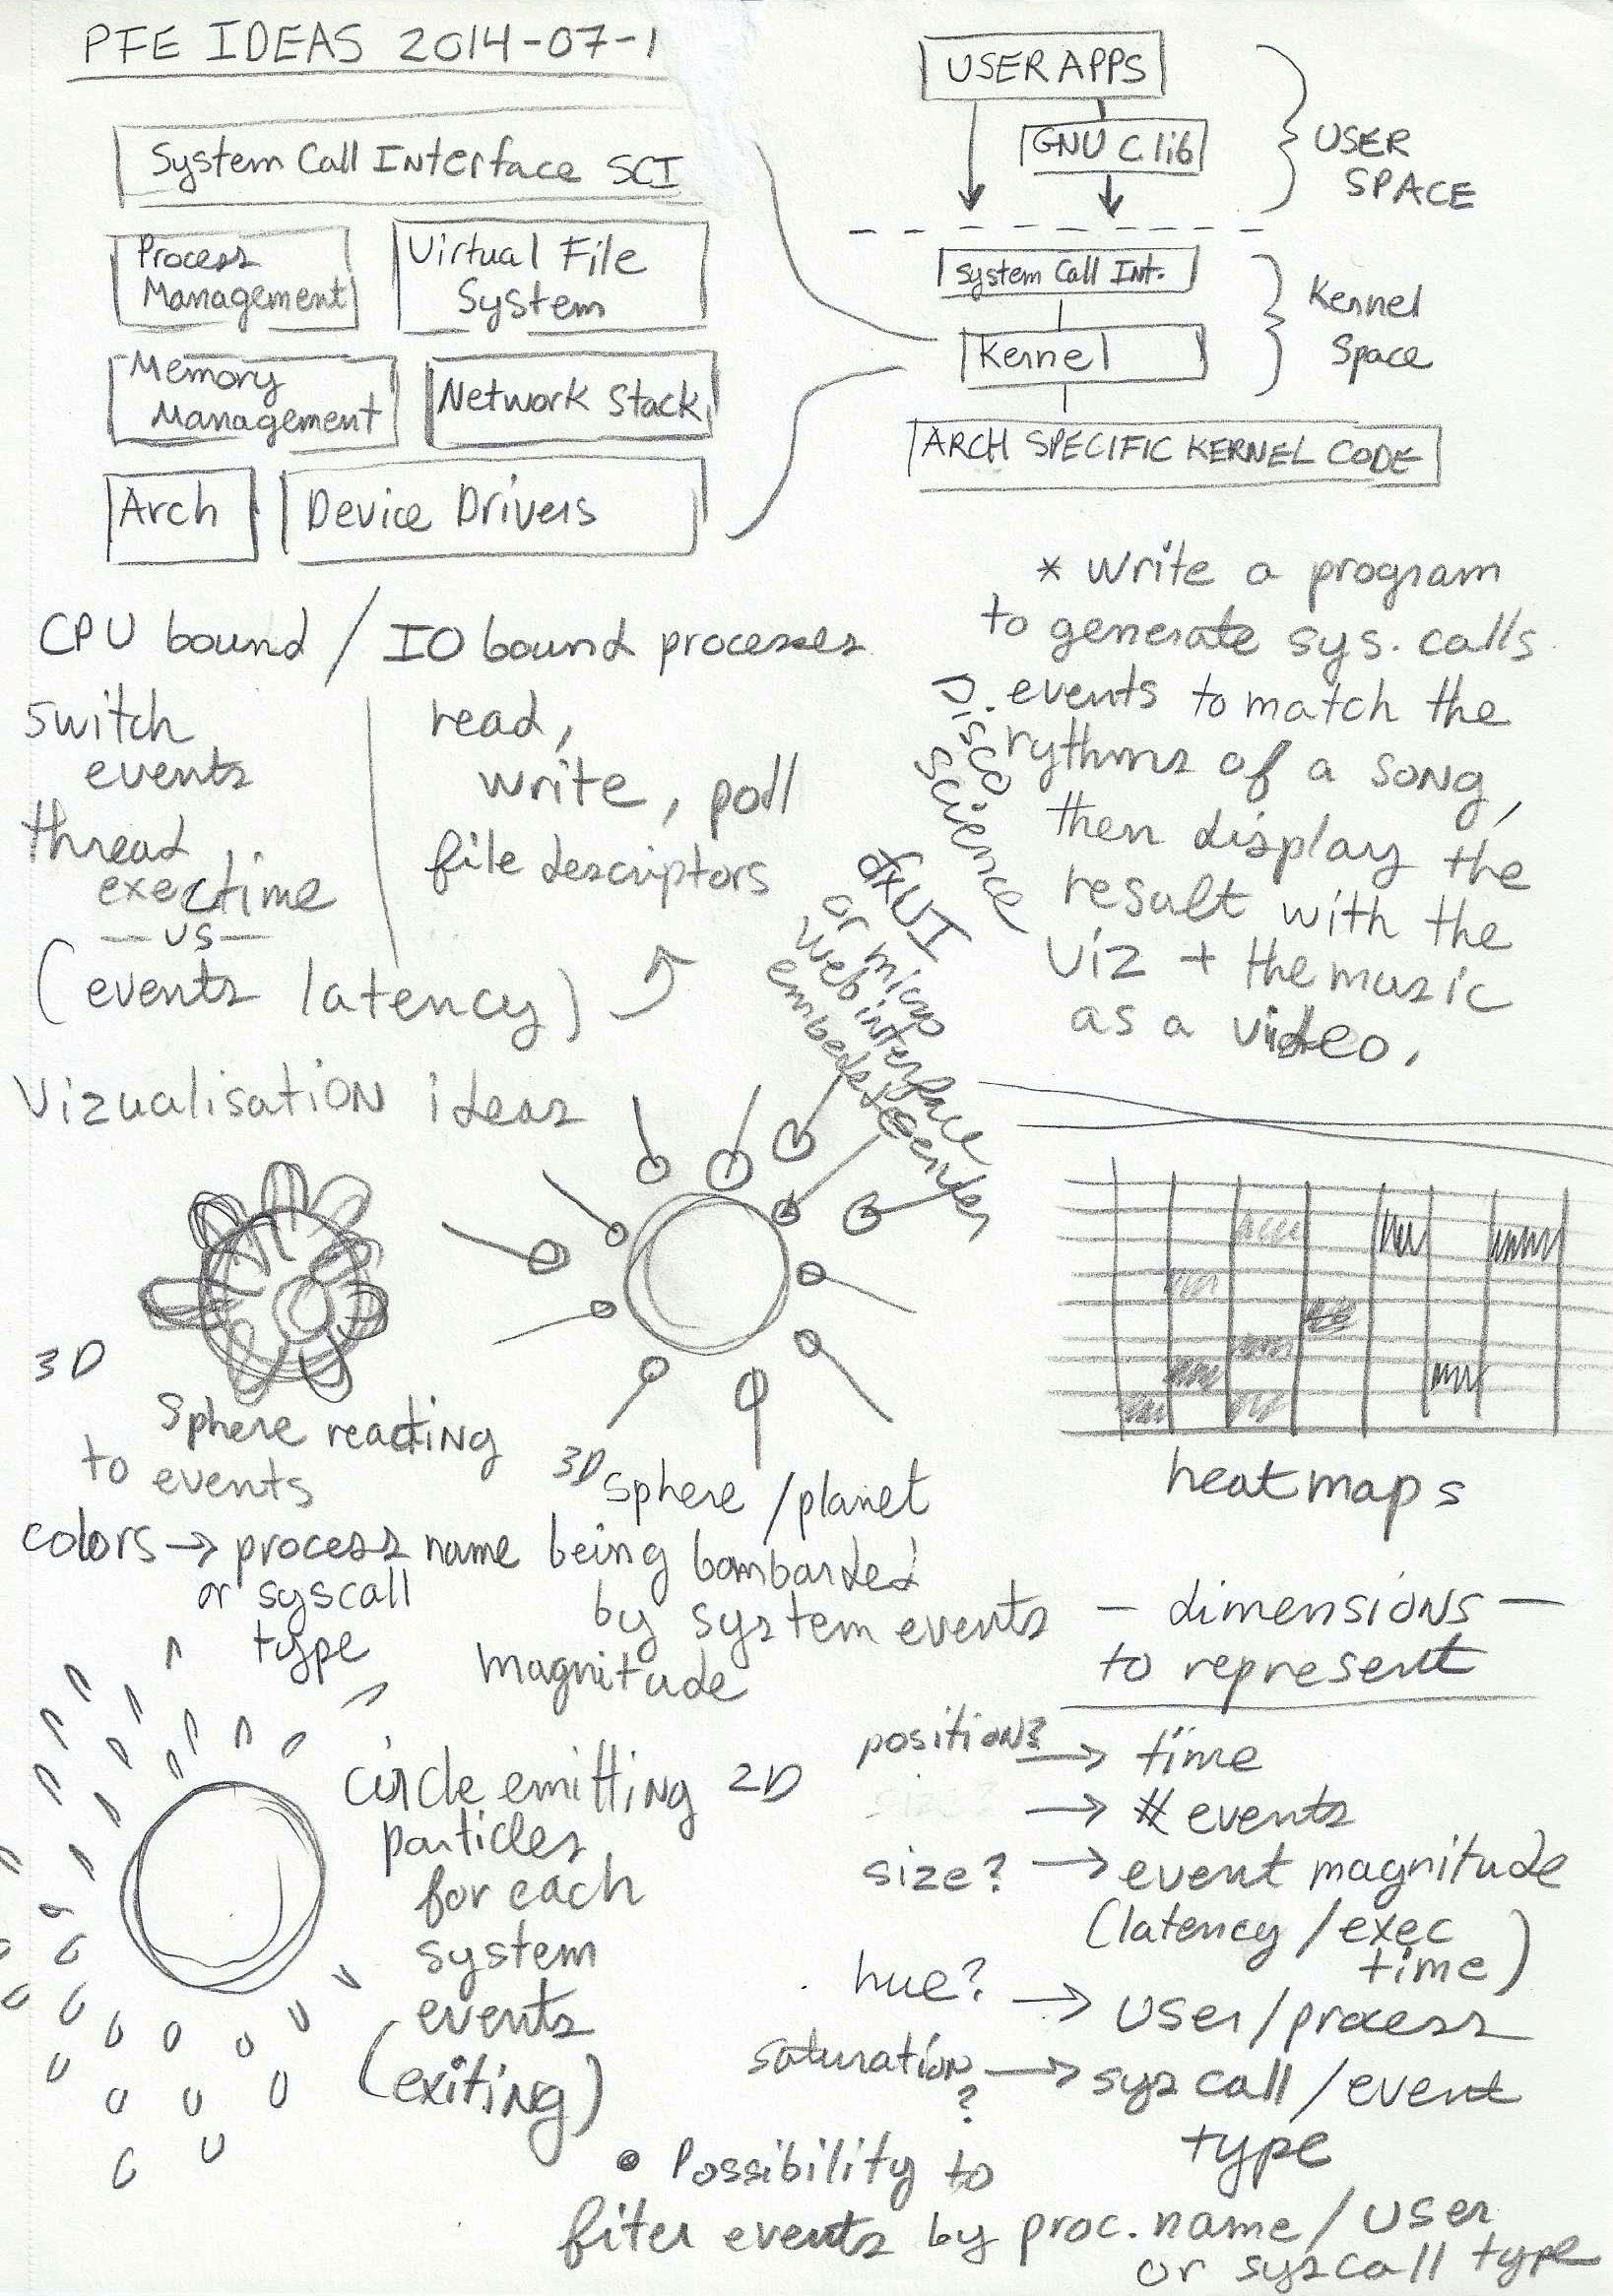 PFE IDEAS 2014-07-1
System Call Interface SCI
Process
Management
Virtual File
System
Memory
Management
Network Stack
Arch
Device Drivers
USER APPS
GNU C lib
USER
SPACE
System Call Int.
Kernel
Kernel
Space
ARCH SPECIFIC KERNEL CODE
CPU bound / IO bound processes
switch
events
thread
exec time
— vs —
(events latency)
read,
write, poll
file descriptors
* write a program
to generate sys. calls
events to match the
rythms of a song,
then display the
result with the
viz + the music
as a video.
Disco
science
dxUI
or micro
web interface
embedded server
Vizualisation ideas
3D
Sphere reacting
to events
colors → process name
or syscall
type
3D sphere / planet
being bombarded
by system events
magnitude
heatmaps
circle emitting 2D
particles
for each
system
events
(exiting)
— dimensions —
to represent
position? → time
size? → # events
size? → event magnitude
(latency / exec
time)
hue? → user/process
saturation? → syscall / event
type
• Possibility to
fiter events by proc. name / user
or syscall type